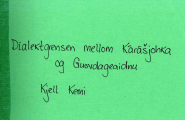 Dialektgensen mellom Kárášjohka
og Guovdageaidnu
Kjell Kemi